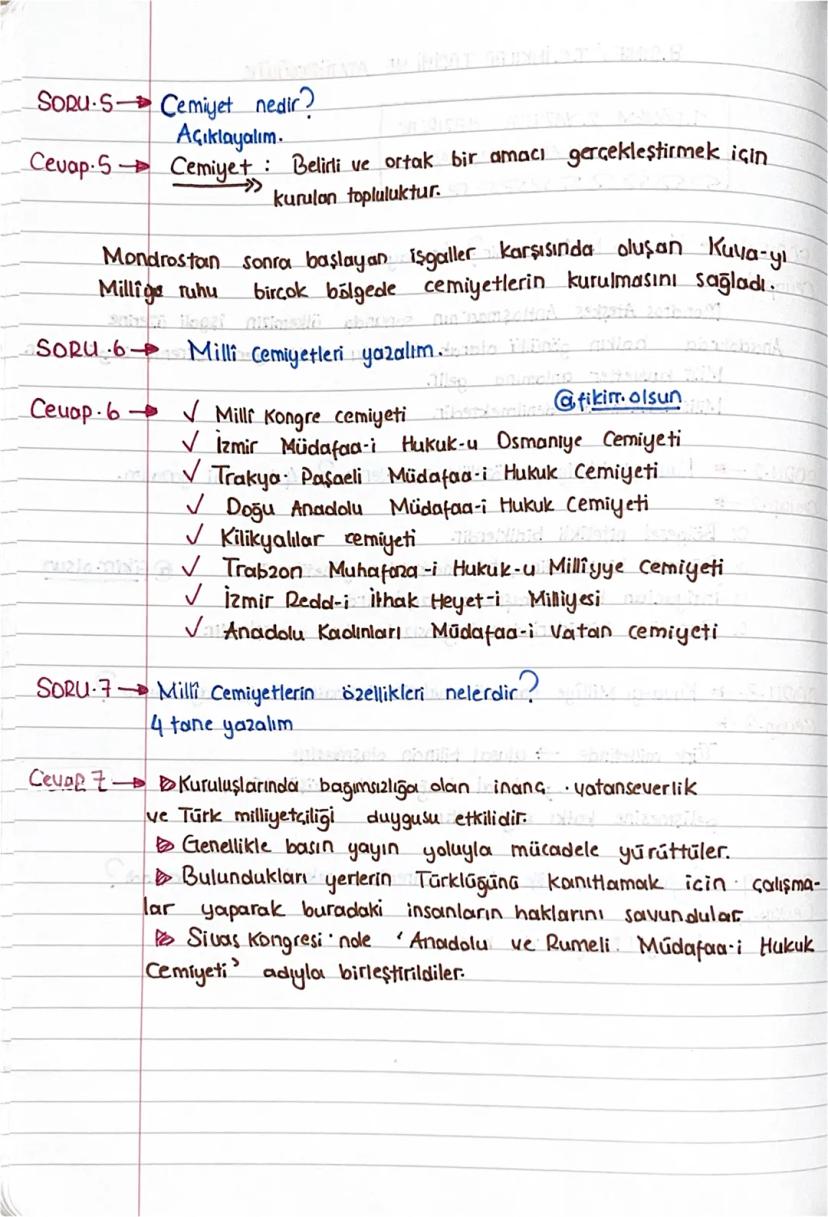 SORU.5→ Cemiyet nedir?
Açıklayalım.
Cevap.5→ Cemiyet : Belirli ve ortak bir amacı gerçekleştirmek için
kurulan topluluktur.
Mondrostan sonra başlayan işgaller karşısında oluşan Kuva-yı
Millîye ruhu birçok bölgede cemiyetlerin kurulmasını sağladı.
SORU.6→ Millî Cemiyetleri yazalım.
Cevap.6→ ✓ Millî Kongre cemiyeti
@fikirr.olsun
✓ İzmir Müdafaa-i Hukuk-u Osmaniye Cemiyeti
✓ Trakya Paşaeli Müdafaa-i Hukuk Cemiyeti
✓ Doğu Anadolu Müdafaa-i Hukuk Cemiyeti
✓ Kilikyalılar cemiyeti
✓ Trabzon Muhafaza-i Hukuk-u Millîyye Cemiyeti
✓ İzmir Redd-i İlhak Heyet-i Milliyesi
✓ Anadolu Kadınları Müdafaa-i Vatan cemiyeti
SORU.7→ Millî Cemiyetlerin özellikleri nelerdir?
4 tane yazalım
Cevap 7→ ▷Kuruluşlarında bağımsızlığa olan inanç . vatanseverlik
ve Türk milliyetçiliği duygusu etkilidir.
▷ Genellikle basın yayın yoluyla mücadele yürüttüler.
▷ Bulundukları yerlerin Türklüğünü kanıtlamak için çalışma-
lar yaparak buradaki insanların haklarını savundular.
▷ Sivas Kongresi'nde 'Anadolu ve Rumeli Müdafaa-i Hukuk
Cemiyeti' adıyla birleştirildiler.